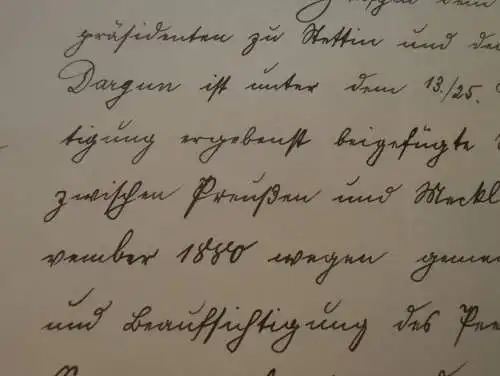 dem
präsidenten zu Stettin und de
Dargun ist unter dem 13./25.
tigung ergebenst beigefügte
zwischen Preußen und Meckl
vember 1880 wegen geme
und Beaufsichtigung des Pee